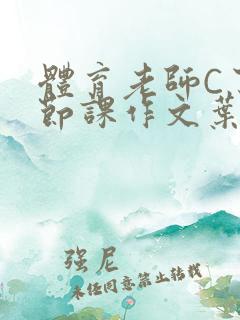 體育老師C
節課作文葉
强尼
未经同意禁止转载